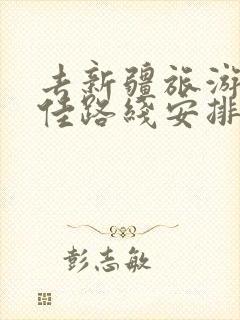 去新疆旅游
佳路线安排
彭志敏